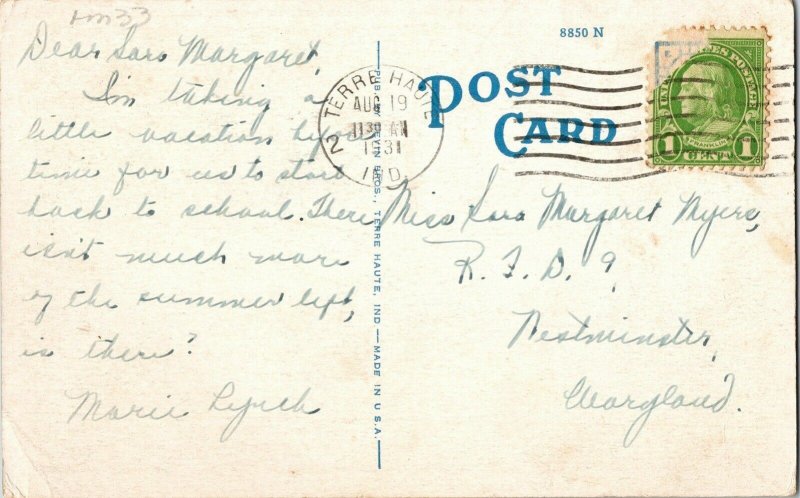 Dear Sara Margaret,
I'm taking a
little vacation before
time for us to start
back to school. There
isn't much more
of the summer left,
is there?
Marie Lynch
PUB. BY BROS., TERRE HAUTE, IND — MADE IN U.S.A.
8850 N
POST
CARD
TERRE HAUTE
AUG 19
1130 AM
1931
2
IND.
ES POSTAGE
FRANKLIN
1 CENT 1
Miss Sara Margaret Myers,
R. F. D. 9,
Westminster,
Maryland.